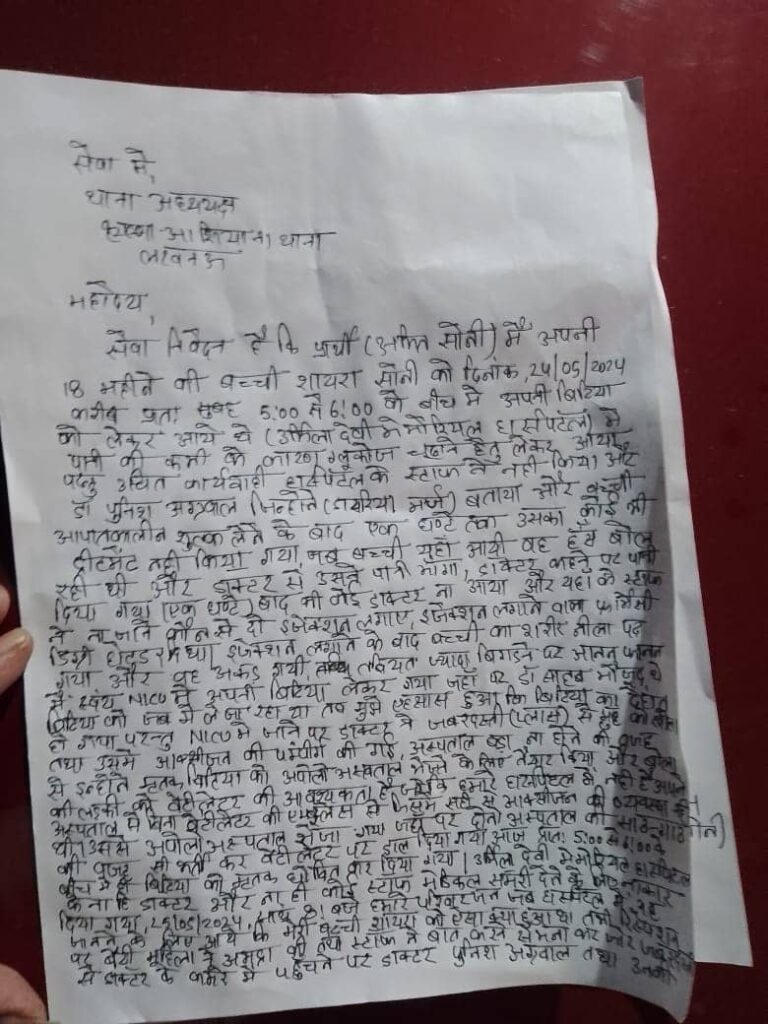 सेवा में,
थाना अध्ययक्ष
आशियाना थाना
लखनऊ
महोदय,
सेवा निवेदन है कि प्रार्थी (अंकित सोनी) मैं अपनी
18 महीने की बच्ची शायरा सोनी को दिनांक, 24/05/2024
करीब प्रता सुबह 5:00 से 6:00 के बीच में अपनी बिटिया
को लेकर आये थे (उर्मिला देवी मेमोरियल हास्पिटल) में
पानी की कमी के कारण ग्लूकोज चढ़ाने हेतु लेकर आया,
परन्तु उचित कार्यवाही हास्पिटल के स्टाफ ने नही किया और
डॉ पुनिश अग्रवाल जिन्होने (डायरिया मर्ज) बताया और बच्ची
आपातकालीन शुल्क लेने के बाद एक घण्टे तक उसका कोई भी
ट्रीटमेंट नही किया गया, जब बच्ची यहाँ आयी वह हँस बोल
रही थी और डाक्टर से उसने पानी माँगा, डाक्टर के कहने पर पानी
दिया गया (एक घण्टे) बाद भी कोई डाक्टर ना आया और यहां के स्टाफ
ने ना जाने कौन से दो इंजेक्शन लगाए, इंजेक्शन लगाने वाला फार्मेसी
डिग्री होल्डर था। इंजेक्शन लगाने के बाद बच्ची का शरीर नीला पड़
गया और वह अकड़ गयी, तबियत ज्यादा बिगड़ने पर आनन फानन
में स्वयं NICU में अपनी बिटिया लेकर गया जहाँ पर डॉ साहब मौजूद थे
बिटिया को जब मैं ले जा रहा था तब मुझे एहसास हुआ कि बिटिया का देहान्त
हो गया परन्तु NICU में जाने पर डाक्टर ने जबरदस्ती (प्लास) से मुँह को खोला
तथा उसमें आक्सीजन की पम्पींग की गई, अस्पताल बड़ा ना होने की वजह
से इन्होने मृतक बिटिया को अपोलो अस्पताल भेजने के लिए तैयार किया और बोला
की लड़की को वेंटीलेटर की आवश्यकता है जोकि हमारे हास्पिटल में नही है आपने
अस्पताल में बिना वेंटीलेटर की एम्बुलेंस से जिसमें सही से आक्सीजन की व्यवस्था
थी। उससे अपोलो अस्पताल भेजा गया जहाँ पर दोनों अस्पताल की साठ-गाठ
की वजह भर्ती कर वेंटीलेटर पर डाल दिया गया आज प्रातः 5:00 से 6:00 के
बीच में ही बिटिया को मृतक घोषित कर दिया गया। उर्मिला देवी मेमोरियल हास्पिटल
के ना ही डाक्टर और ना ही कोई स्टाफ मेडिकल समरी देने के लिए नाकार
दिया गया, 25/05/2024, 8 बजे हमारे परिवारजन जब हास्पिटल में यह
जानने के लिए आये कि मेरी बच्ची शायरा को ऐसा क्या हुआ था तभी रिसेप्शन
पर बैठी महिला ने अभद्रता की तथा स्टाफ ने बात करने से मना कर जोर
से डॉक्टर के कमरे में पहुँचने पर डॉक्टर पुनिश अग्रवाल तथा उनकी